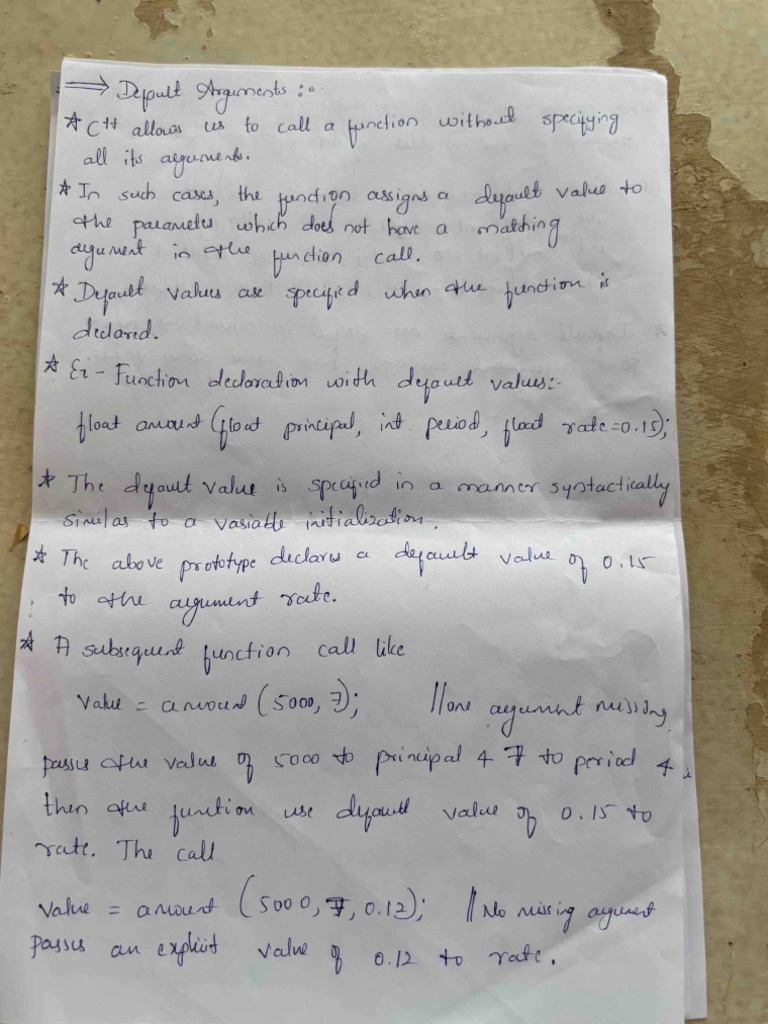 ⇒ Default Arguments :-
* C++ allows us to call a function without specifying
all its arguments.
* In such cases, the function assigns a default value to
the parameter which does not have a matching
argument in the function call.
* Default values are specified when the function is
declared.
* Ex - Function declaration with default values:-
float amount (float principal, int period, float rate=0.15);
* The default value is specified in a manner syntactically
similar to a variable initialization.
* The above prototype declares a default value of 0.15
to the argument rate.
* A subsequent function call like
Value = amount (5000, 7); //one argument missing
passes the value of 5000 to principal & 7 to period &
then the function use default value of 0.15 to
rate. The call
Value = amount (5000, 7, 0.12); // No missing argument
passes an explicit value of 0.12 to rate.